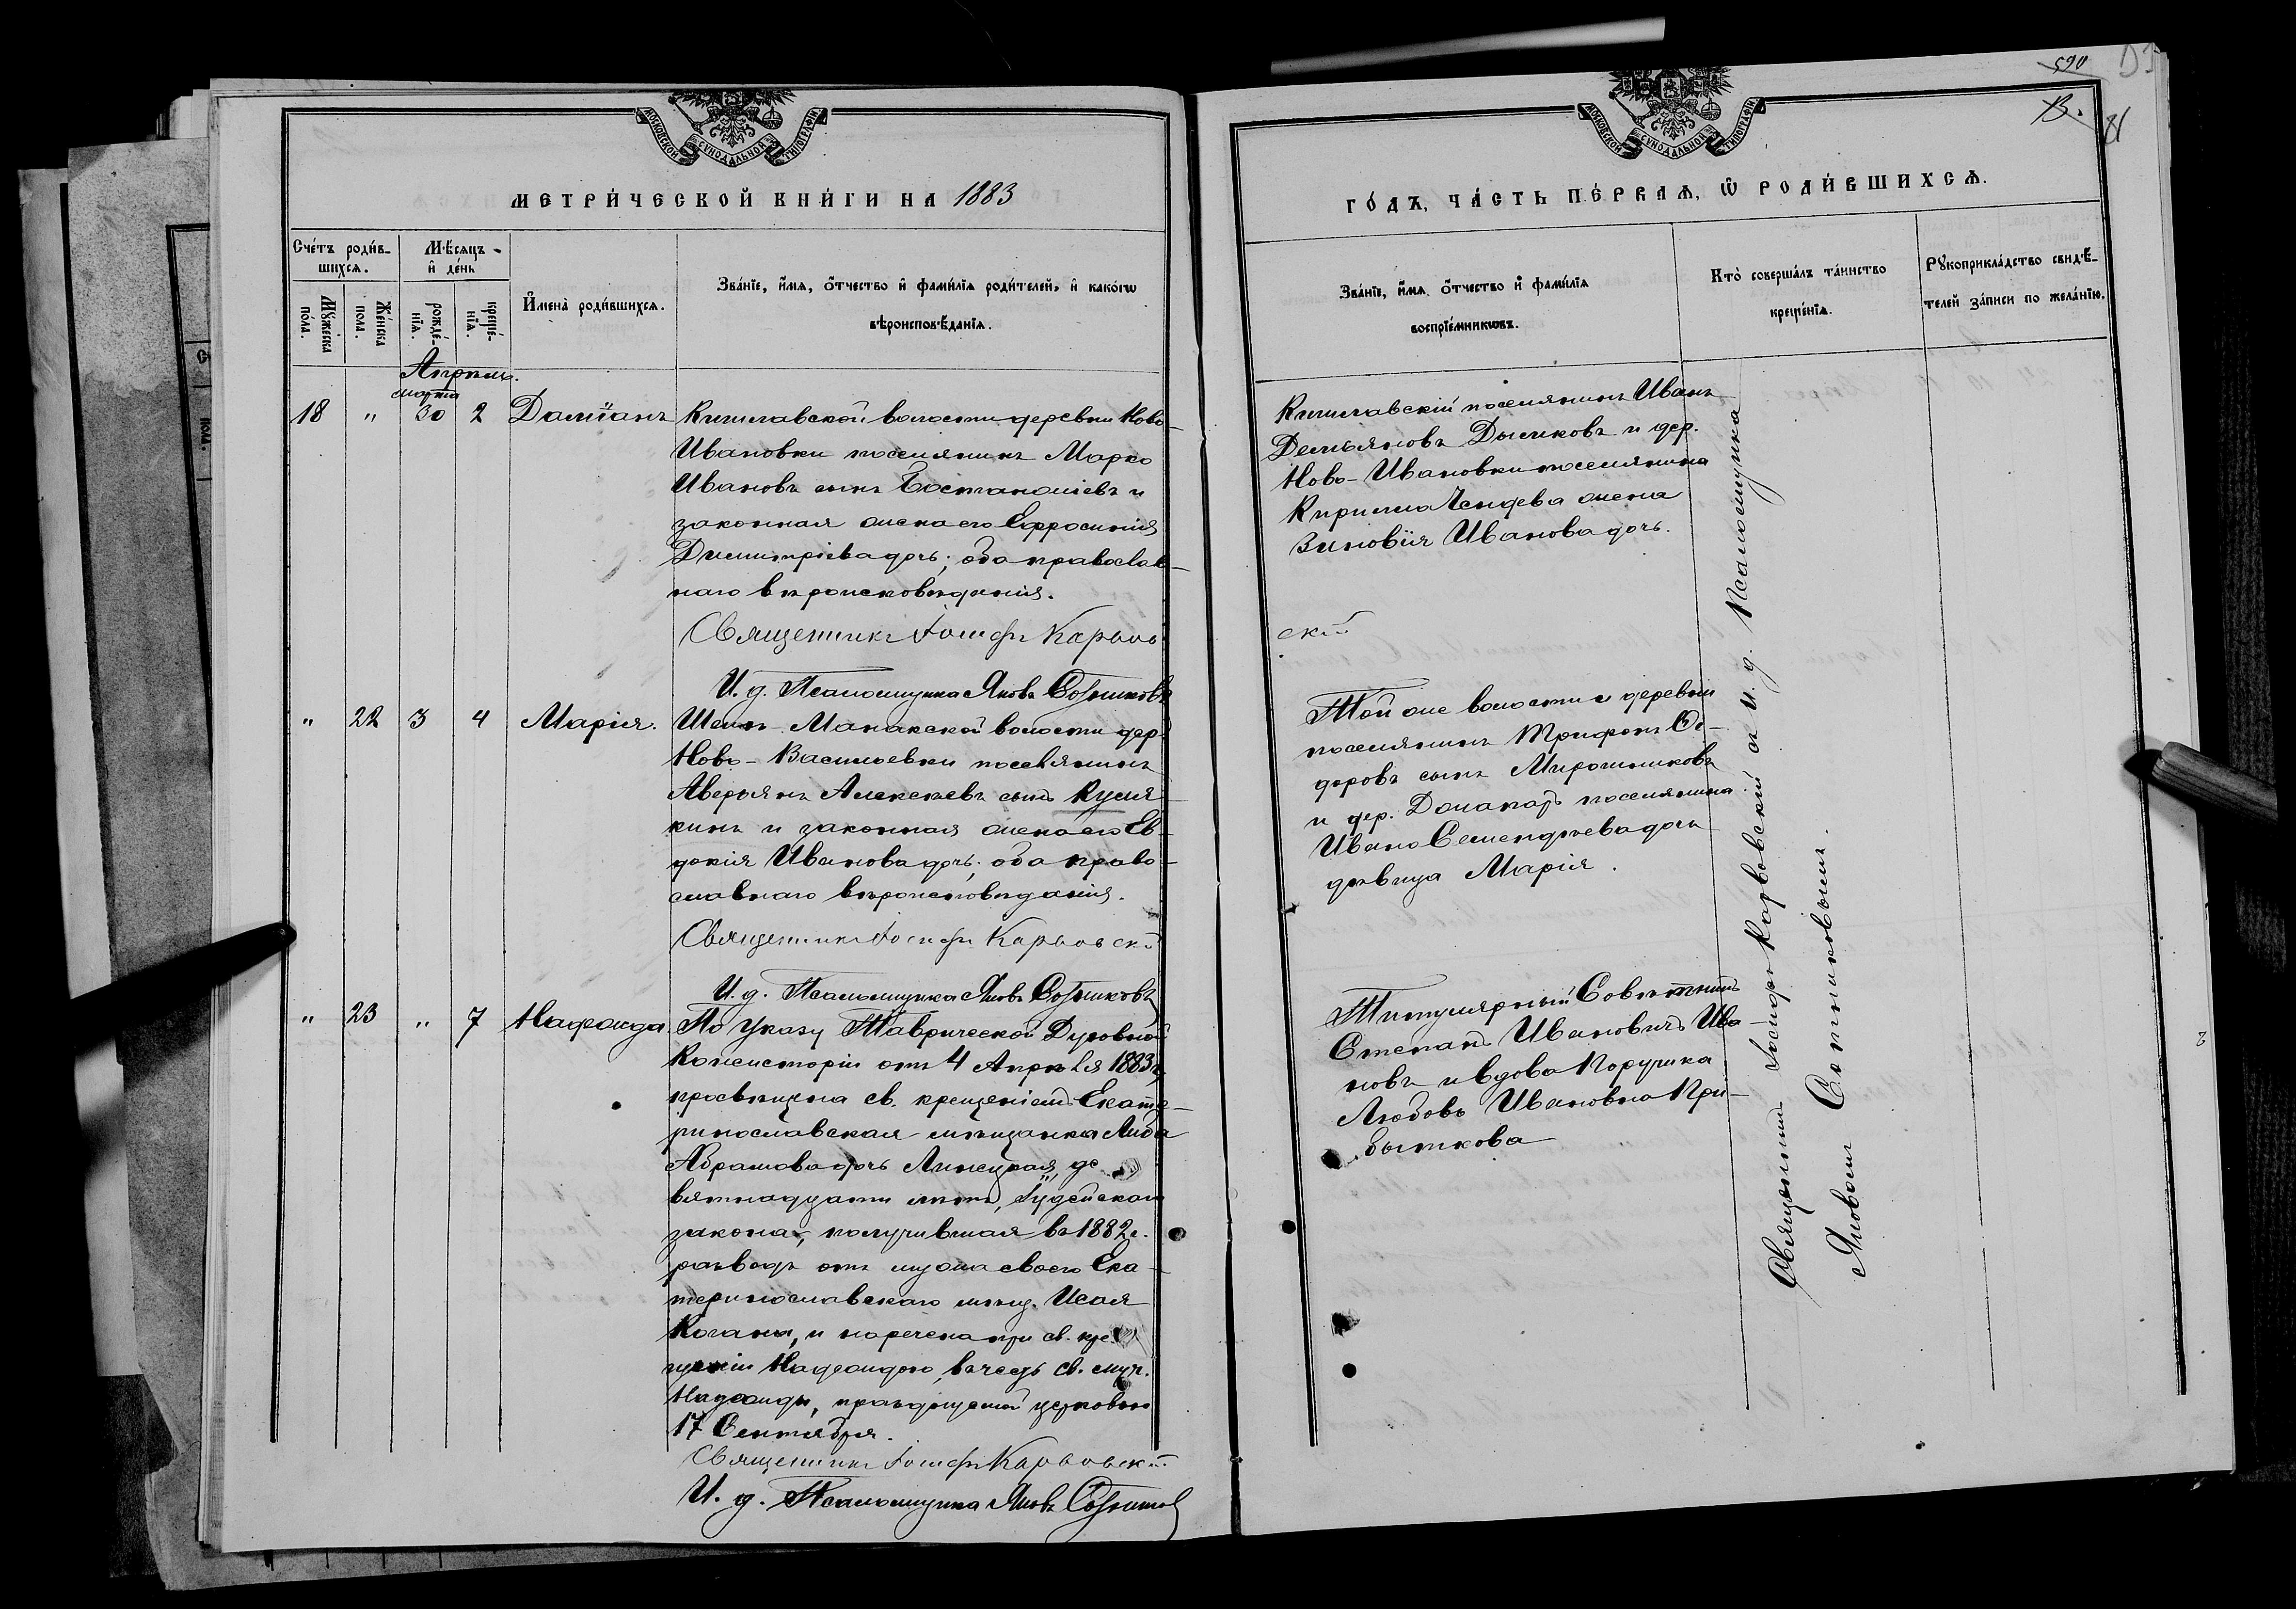 МОСКОВСКОЙ СѴНОДАЛЬНОЙ ТИПОГРАФІИ
МЕТРИ́ЧЕСКОЙ КНИ́ГИ НА 1883
Сче́тъ роди́в-
шихсѧ.
Мꙋ́жеска
по́ла.
Же́нска
пола.
Мѣ́сяцъ
и҆ де́нь
рожде́-
нїѧ.
креще́-
нїѧ.
И҆мена̀ роди́вшихсѧ.
Зва́нїе, и҆́мѧ, ѻ҆́тчество и҆ фами́лїѧ роди́телей, и҆ како́гѡ
вѣроисповѣ́данїѧ.
Апрѣль.
марта
18 " 30 2 Даміанъ
Кишлавской волости деревни Ново-
Ивановки поселянинъ Марко
Ивановъ сынъ и
законная жена его Ефросинія
Димитріева дочь; оба православ-
наго вѣроисповѣданія.
Священникъ Іосифъ Карьов
И. д. Псаломщика Яковъ Сотниковъ
" 22 3 4 Марія.
Шейхъ-Манакской волости дер.
Ново-Васильевки поселянинъ
Аверьянъ Алексѣевъ сынъ Куля-
кинъ и законная жена его Ев-
докія Иванова дочь; оба право-
славнаго вѣроисповѣданія.
Священникъ Іосифъ Карьовскій
И. д. Псаломщика Яковъ Сотниковъ
" 23 " 7 Надежда
По указу Таврической Духовной
Консисторіи отъ 4 Апрѣля 1883 г.
просвѣщена св. крещеніемъ Екате-
ринославская мѣщанка Либа
Абрамова дочь Линецкая, де-
вятнадцати лѣтъ, Іудейскаго
закона, получившая въ 1882 г.
разводъ отъ мужа своего Ека-
теринославскаго мѣщ. Исая
Когана, и наречена при св. кре-
щеніи Надеждою, въ честь св. муч.
Надежды, празднуемой церковью
17 Сентября.
Священникъ Іосифъ Карьовскій
И. д. Псаломщика Яковъ Сотников
590
13.
МОСКОВСКОЙ СѴНОДАЛЬНОЙ ТИПОГРАФІИ
ГО́ДЪ, ЧА́СТЬ ПЕ́РВАѦ, Ѽ РОДИ́ВШИХСѦ.
Зва́нїе, и҆́мѧ, ѻ҆́тчество и҆ фами́лїѧ
воспрїе́мникѡвъ.
Кто̀ соверша́лъ та́инство
креще́нїѧ.
Рꙋкоприкла́дство свидѣ́-
телей за́писи по жела́нїю.
Кишлавскій поселянинъ Иванъ
Демьяновъ Дымковъ и дер.
Ново-Ивановки поселянина
Кирилла Чендева жена
Зиновія Иванова дочь.
скій
Той же волости и деревни
поселянинъ Трифонъ Ѳе-
доровъ сынъ Мирошниковъ
и дер. поселянина
Ивана Семенджева дочь
дѣвица Марія.
Титулярный Совѣтникъ
Степанъ Ивановичъ Ива-
новъ и вдова Поручика
Любовь Ивановна При-
быткова
Священникъ Іосифъ Карьовскій съ И. д. Псаломщика
Яковомъ Сотниковымъ.